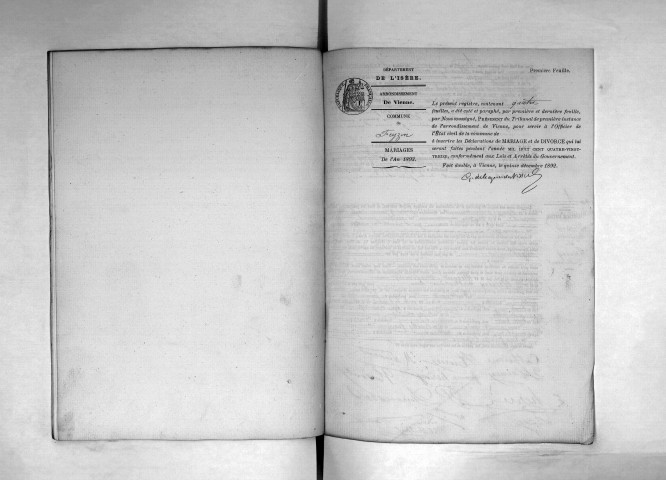 DÉPARTEMENT
DE L'ISÈRE.
ARRONDISSEMENT
De Vienne.
COMMUNE
de
Feyzin
MARIAGES
De l'An 1893.
Premier Feuillet.
Le présent registre, contenant quatre
feuilles, a été coté et paraphé, par première et dernière feuille,
par Nous soussigné, Président du Tribunal de première instance
de l'arrondissement de Vienne, pour servir à l'Officier de
l'État civil de la commune de
à inscrire les Déclarations de MARIAGE et de DIVORCE qui lui
seront faites pendant l'année MIL HUIT CENT QUATRE-VINGT-
TREIZE, conformément aux Lois et Arrêtés du Gouvernement.
Fait double, à Vienne, le quinze décembre 1892.